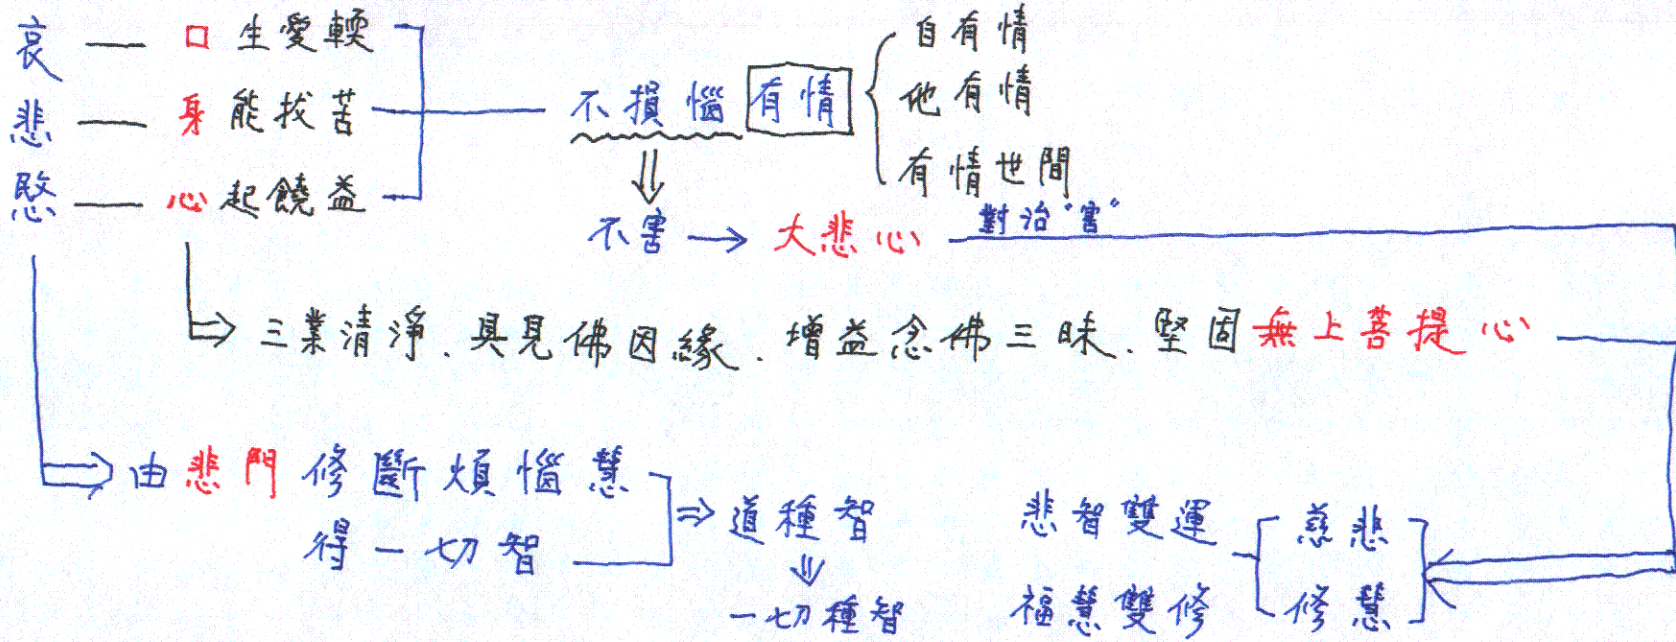 哀 — 口 生愛輭
悲 — 身 能拔苦
愍 — 心 起饒益
不損惱有情
自有情
他有情
有情世間
不害 → 大悲心
對治"害"
三業清淨、具見佛因緣、增益念佛三昧、堅固無上菩提心
由悲門修斷煩惱慧
得一切智
道種智
一切種智
悲智雙運
福慧雙修
慈悲
修慧